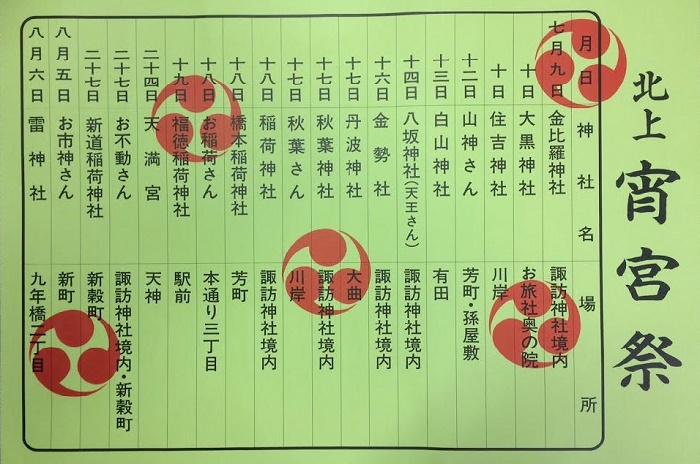 北上 宵宮祭
月日 神社名 場所
七月九日 金比羅神社 諏訪神社境内
十日 大黒神社 お旅社奥の院
十日 住吉神社 川岸
十二日 山神さん 芳町・孫屋敷
十三日 白山神社 有田
十四日 八坂神社(天王さん) 諏訪神社境内
十六日 金勢社 諏訪神社境内
十七日 丹波神社 大曲
十七日 秋葉神社 諏訪神社境内
十七日 秋葉さん 川岸
十八日 稲荷神社 諏訪神社境内
十八日 橋本稲荷神社 芳町
十八日 お稲荷さん 本通り三丁目
十九日 福徳稲荷神社 駅前
二十四日 天満宮 天神
二十七日 お不動さん 諏訪神社境内・新穀町
二十七日 新道稲荷神社 新穀町
八月五日 お市神さん 新町
八月六日 雷神社 九年橋二丁目